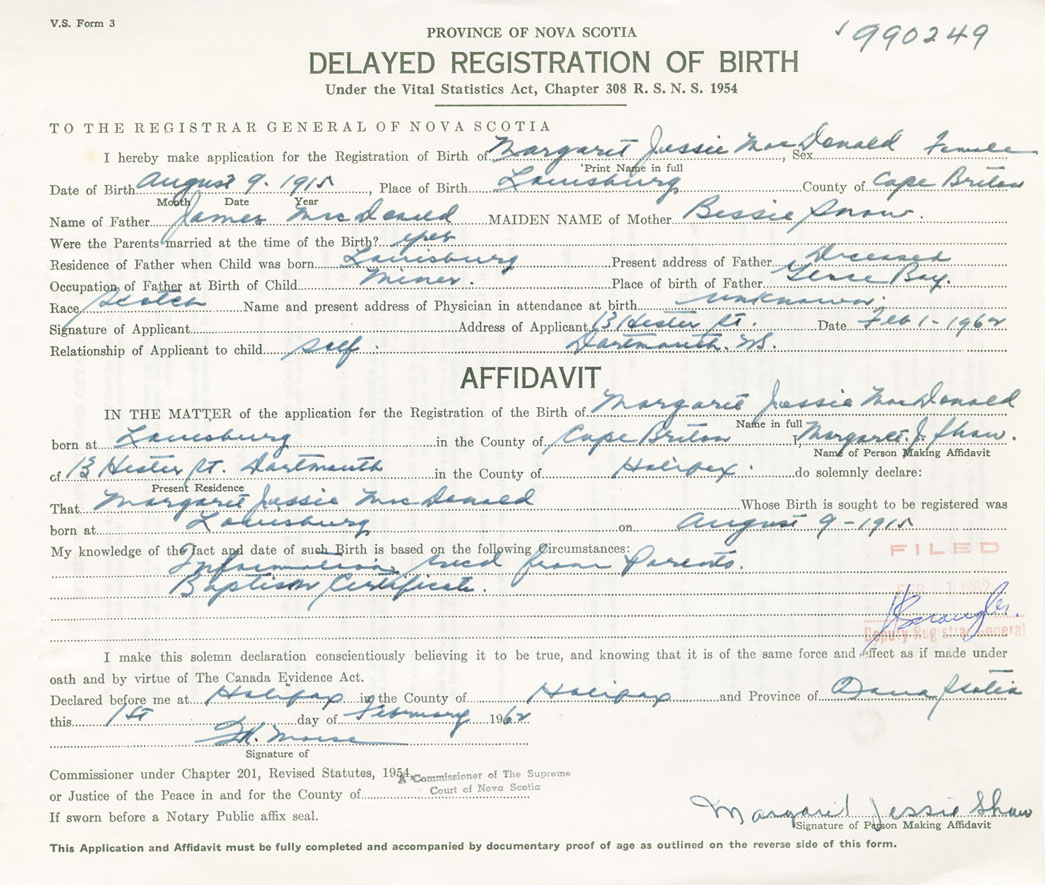 V.S. Form 3
990249
PROVINCE OF NOVA SCOTIA
DELAYED REGISTRATION OF BIRTH
Under the Vital Statistics Act, Chapter 308 R. S. N. S. 1954
TO THE REGISTRAR GENERAL OF NOVA SCOTIA
I hereby make application for the Registration of Birth of Margaret Jessie MacDonald, Sex Female
Print Name in full
Date of Birth August 9. 1915, Place of Birth Louisburg County of Cape Briton
Month Date Year
Name of Father James MacDonald MAIDEN NAME of Mother Bessie Snow.
Were the Parents married at the time of the Birth? yes
Residence of Father when Child was born Louisburg Present address of Father Dceased
Occupation of Father at Birth of Child Miner. Place of birth of Father Bay.
Race Scotch Name and present address of Physician in attendance at birth unknown.
Signature of Applicant Address of Applicant 13 Hester St. Date Feb 1-1962
Relationship of Applicant to child self. Dartmouth. N.S.
AFFIDAVIT
IN THE MATTER of the application for the Registration of the Birth of Margaret Jessie MacDonald
Name in full
born at Louisburg in the County of Cape Briton I Margaret. J. Shaw.
Name of Person Making Affidavit
of 13 Hester St. Dartmouth in the County of Halifax. do solemnly declare:
Present Residence
That Margaret Jessie MacDonald Whose Birth is sought to be registered was
born at Louisburg on August 9-1915
My knowledge of the fact and date of such Birth is based on the following Circumstances:
Information recd from Parents.
Baptism Certificate.
FILED
FEB 1 1962
Deputy Registrar General
I make this solemn declaration conscientiously believing it to be true, and knowing that it is of the same force and effect as if made under
oath and by virtue of The Canada Evidence Act.
Declared before me at Halifax in the County of Halifax and Province of Nova Scotia
this 1st day of February 1962
Signature of
Commissioner under Chapter 201, Revised Statutes, 1954,
A Commissioner of The Supreme
Court of Nova Scotia
or Justice of the Peace in and for the County of
If sworn before a Notary Public affix seal.
Margaret Jessie Shaw
Signature of Person Making Affidavit
This Application and Affidavit must be fully completed and accompanied by documentary proof of age as outlined on the reverse side of this form.